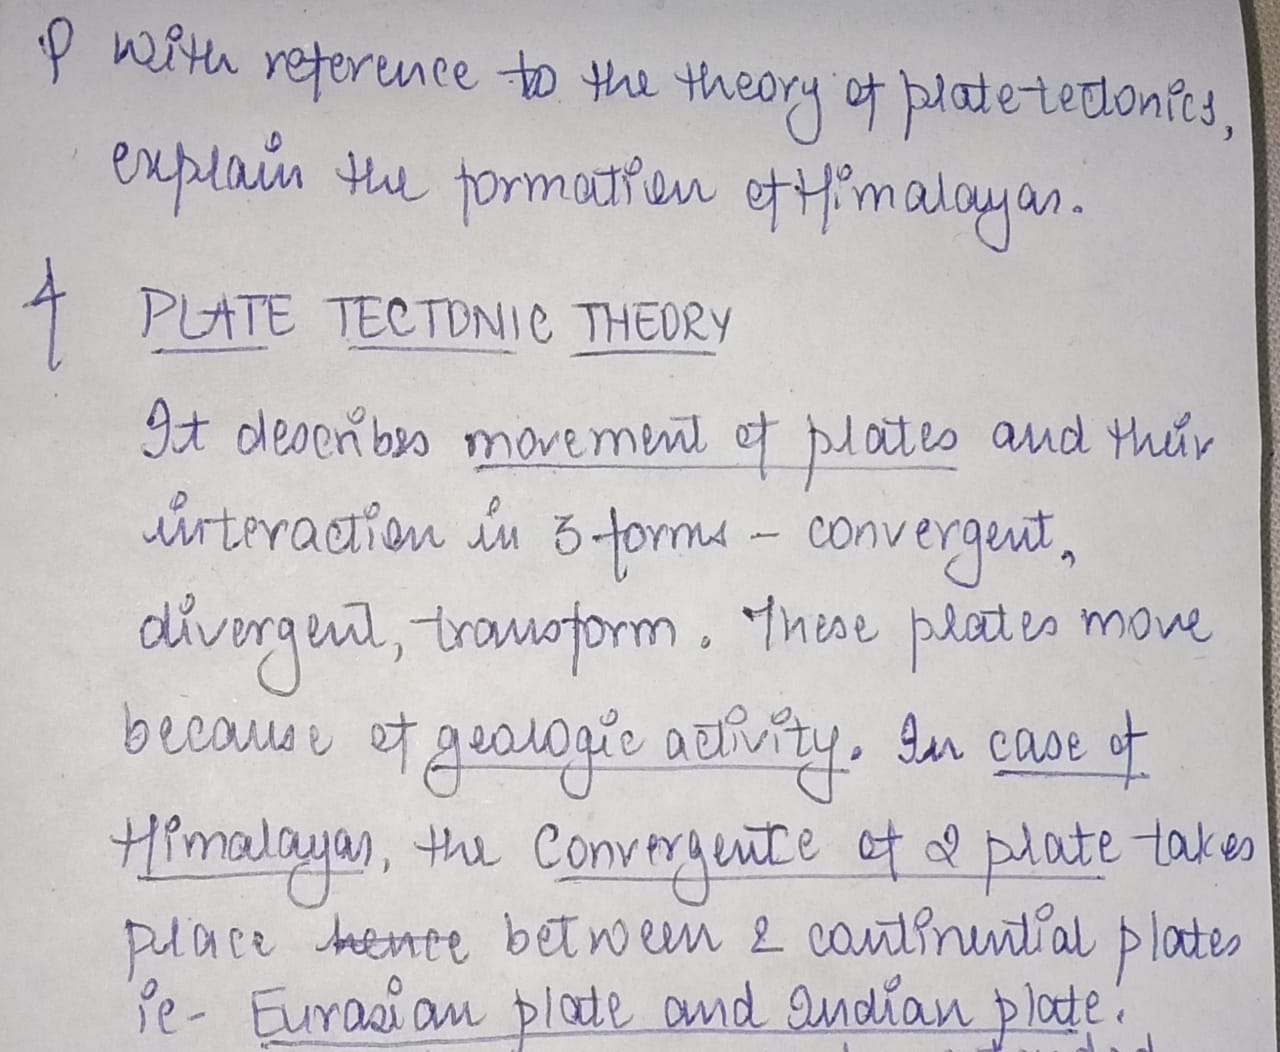 Q With reference to the theory of plate tectonics,
explain the formation of Himalayas.
A PLATE TECTONIC THEORY
It describes movement of plates and their
interaction in 3 forms - convergent,
divergent, transform. These plates move
because of geologic activity. In case of
Himalayas, the Convergence of 2 plate takes
place hence between 2 continential plates
ie- Eurasian plate and Indian plate.